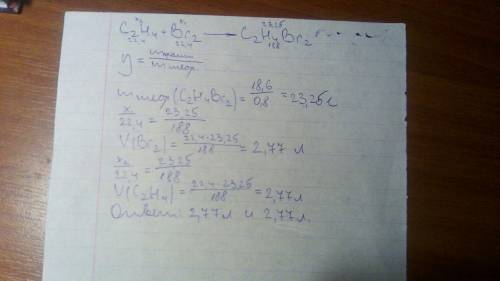 x x₁ 23,25
C₂H₄ + Br₂ ⟶ C₂H₄Br₂
22,4 22,4 188
y = mпракт / mтеор
mтеор(C₂H₄Br₂) = 18,6 / 0,8 = 23,25 г
x / 22,4 = 23,25 / 188
V(Br₂) = 22,4·23,25 / 188 = 2,77 л
x₂ / 22,4 = 23,25 / 188
V(C₂H₄) = 22,4·23,25 / 188 = 2,77 л
Ответ: 2,77 л и 2,77 л.